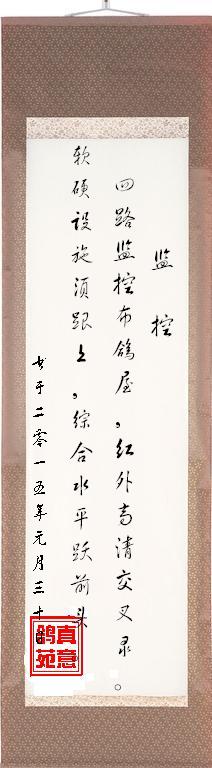 监控
四路监控布鸽屋，红外高清交叉录。
软硕设施须跟上，综合水平跃前头
书于二零一五年元月三十日
真意鸽苑